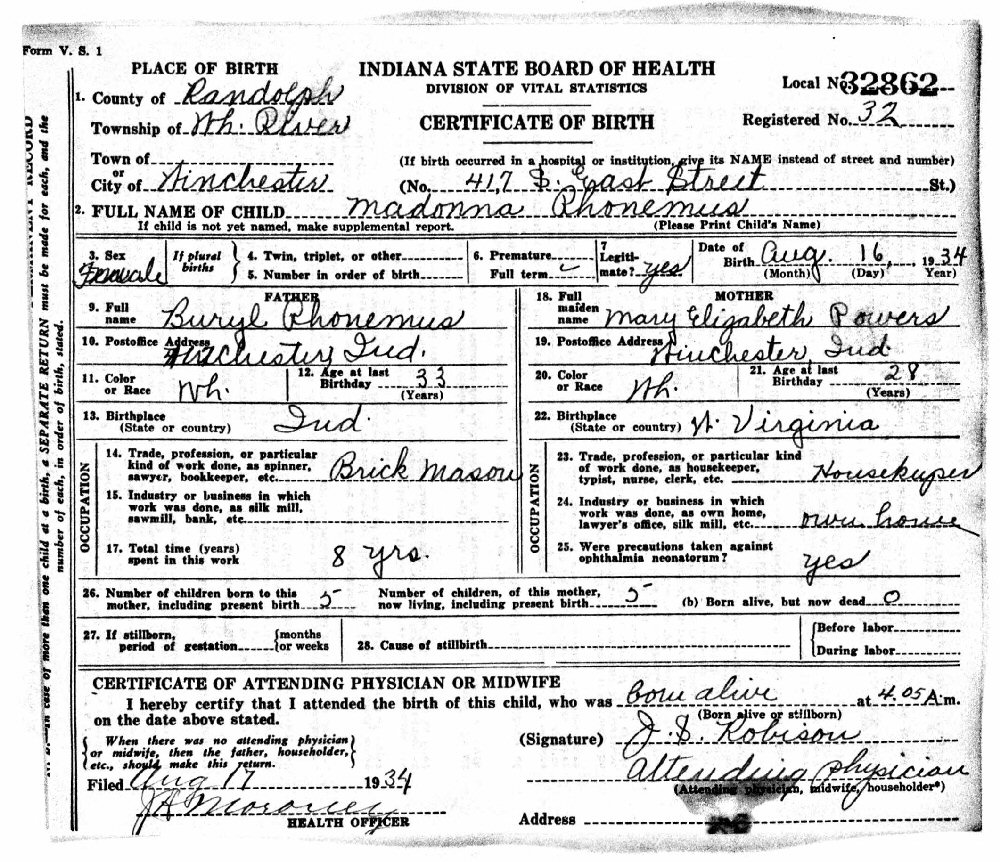 Form V. S. 1
PLACE OF BIRTH
INDIANA STATE BOARD OF HEALTH
DIVISION OF VITAL STATISTICS
CERTIFICATE OF BIRTH
Local No. 32862
Registered No. 32
1. County of Randolph
Township of Wh. River
Town of
or
City of Winchester
(If birth occurred in a hospital or institution, give its NAME instead of street and number)
(No. 417 S. East Street St.)
2. FULL NAME OF CHILD Madonna Rhonemus
If child is not yet named, make supplemental report. (Please Print Child's Name)
3. Sex Female
If plural births
4. Twin, triplet, or other
5. Number in order of birth
6. Premature
Full term ✓
7 Legitimate? yes
Date of Birth Aug. 16, 1934
(Month) (Day) Year)
FATHER
9. Full name Buryl Rhonemus
10. Postoffice Address Winchester, Ind.
11. Color or Race Wh.
12. Age at last Birthday 33 (Years)
13. Birthplace (State or country) Ind.
OCCUPATION
14. Trade, profession, or particular
kind of work done, as spinner,
sawyer, bookkeeper, etc. Brick Mason
15. Industry or business in which
work was done, as silk mill,
sawmill, bank, etc.
17. Total time (years)
spent in this work 8 yrs.
MOTHER
18. Full maiden name Mary Elizabeth Powers
19. Postoffice Address Winchester, Ind
20. Color or Race Wh.
21. Age at last Birthday 28 (Years)
22. Birthplace (State or country) W. Virginia
OCCUPATION
23. Trade, profession, or particular kind
of work done, as housekeeper,
typist, nurse, clerk, etc. Housekeeper
24. Industry or business in which
work was done, as own home,
lawyer's office, silk mill, etc. own home
25. Were precautions taken against
ophthalmia neonatorum? yes
26. Number of children born to this
mother, including present birth 5
Number of children, of this mother,
now living, including present birth 5
(b) Born alive, but now dead 0
27. If stillborn,
period of gestation {months or weeks
28. Cause of stillbirth
{Before labor
{During labor
CERTIFICATE OF ATTENDING PHYSICIAN OR MIDWIFE
I hereby certify that I attended the birth of this child, who was born alive at 4.05 A. m.
(Born alive or stillborn)
on the date above stated.
{When there was no attending physician
or midwife, then the father, householder,
etc., should make this return.}
(Signature) J. S. Robison
Attending physician
(Attending physician, midwife, householder*)
Filed Aug 17 1934
HEALTH OFFICER
Address
must be made for each, and the
in case of more than one child at a birth, a SEPARATE RETURN
number of each, in order of birth, stated.